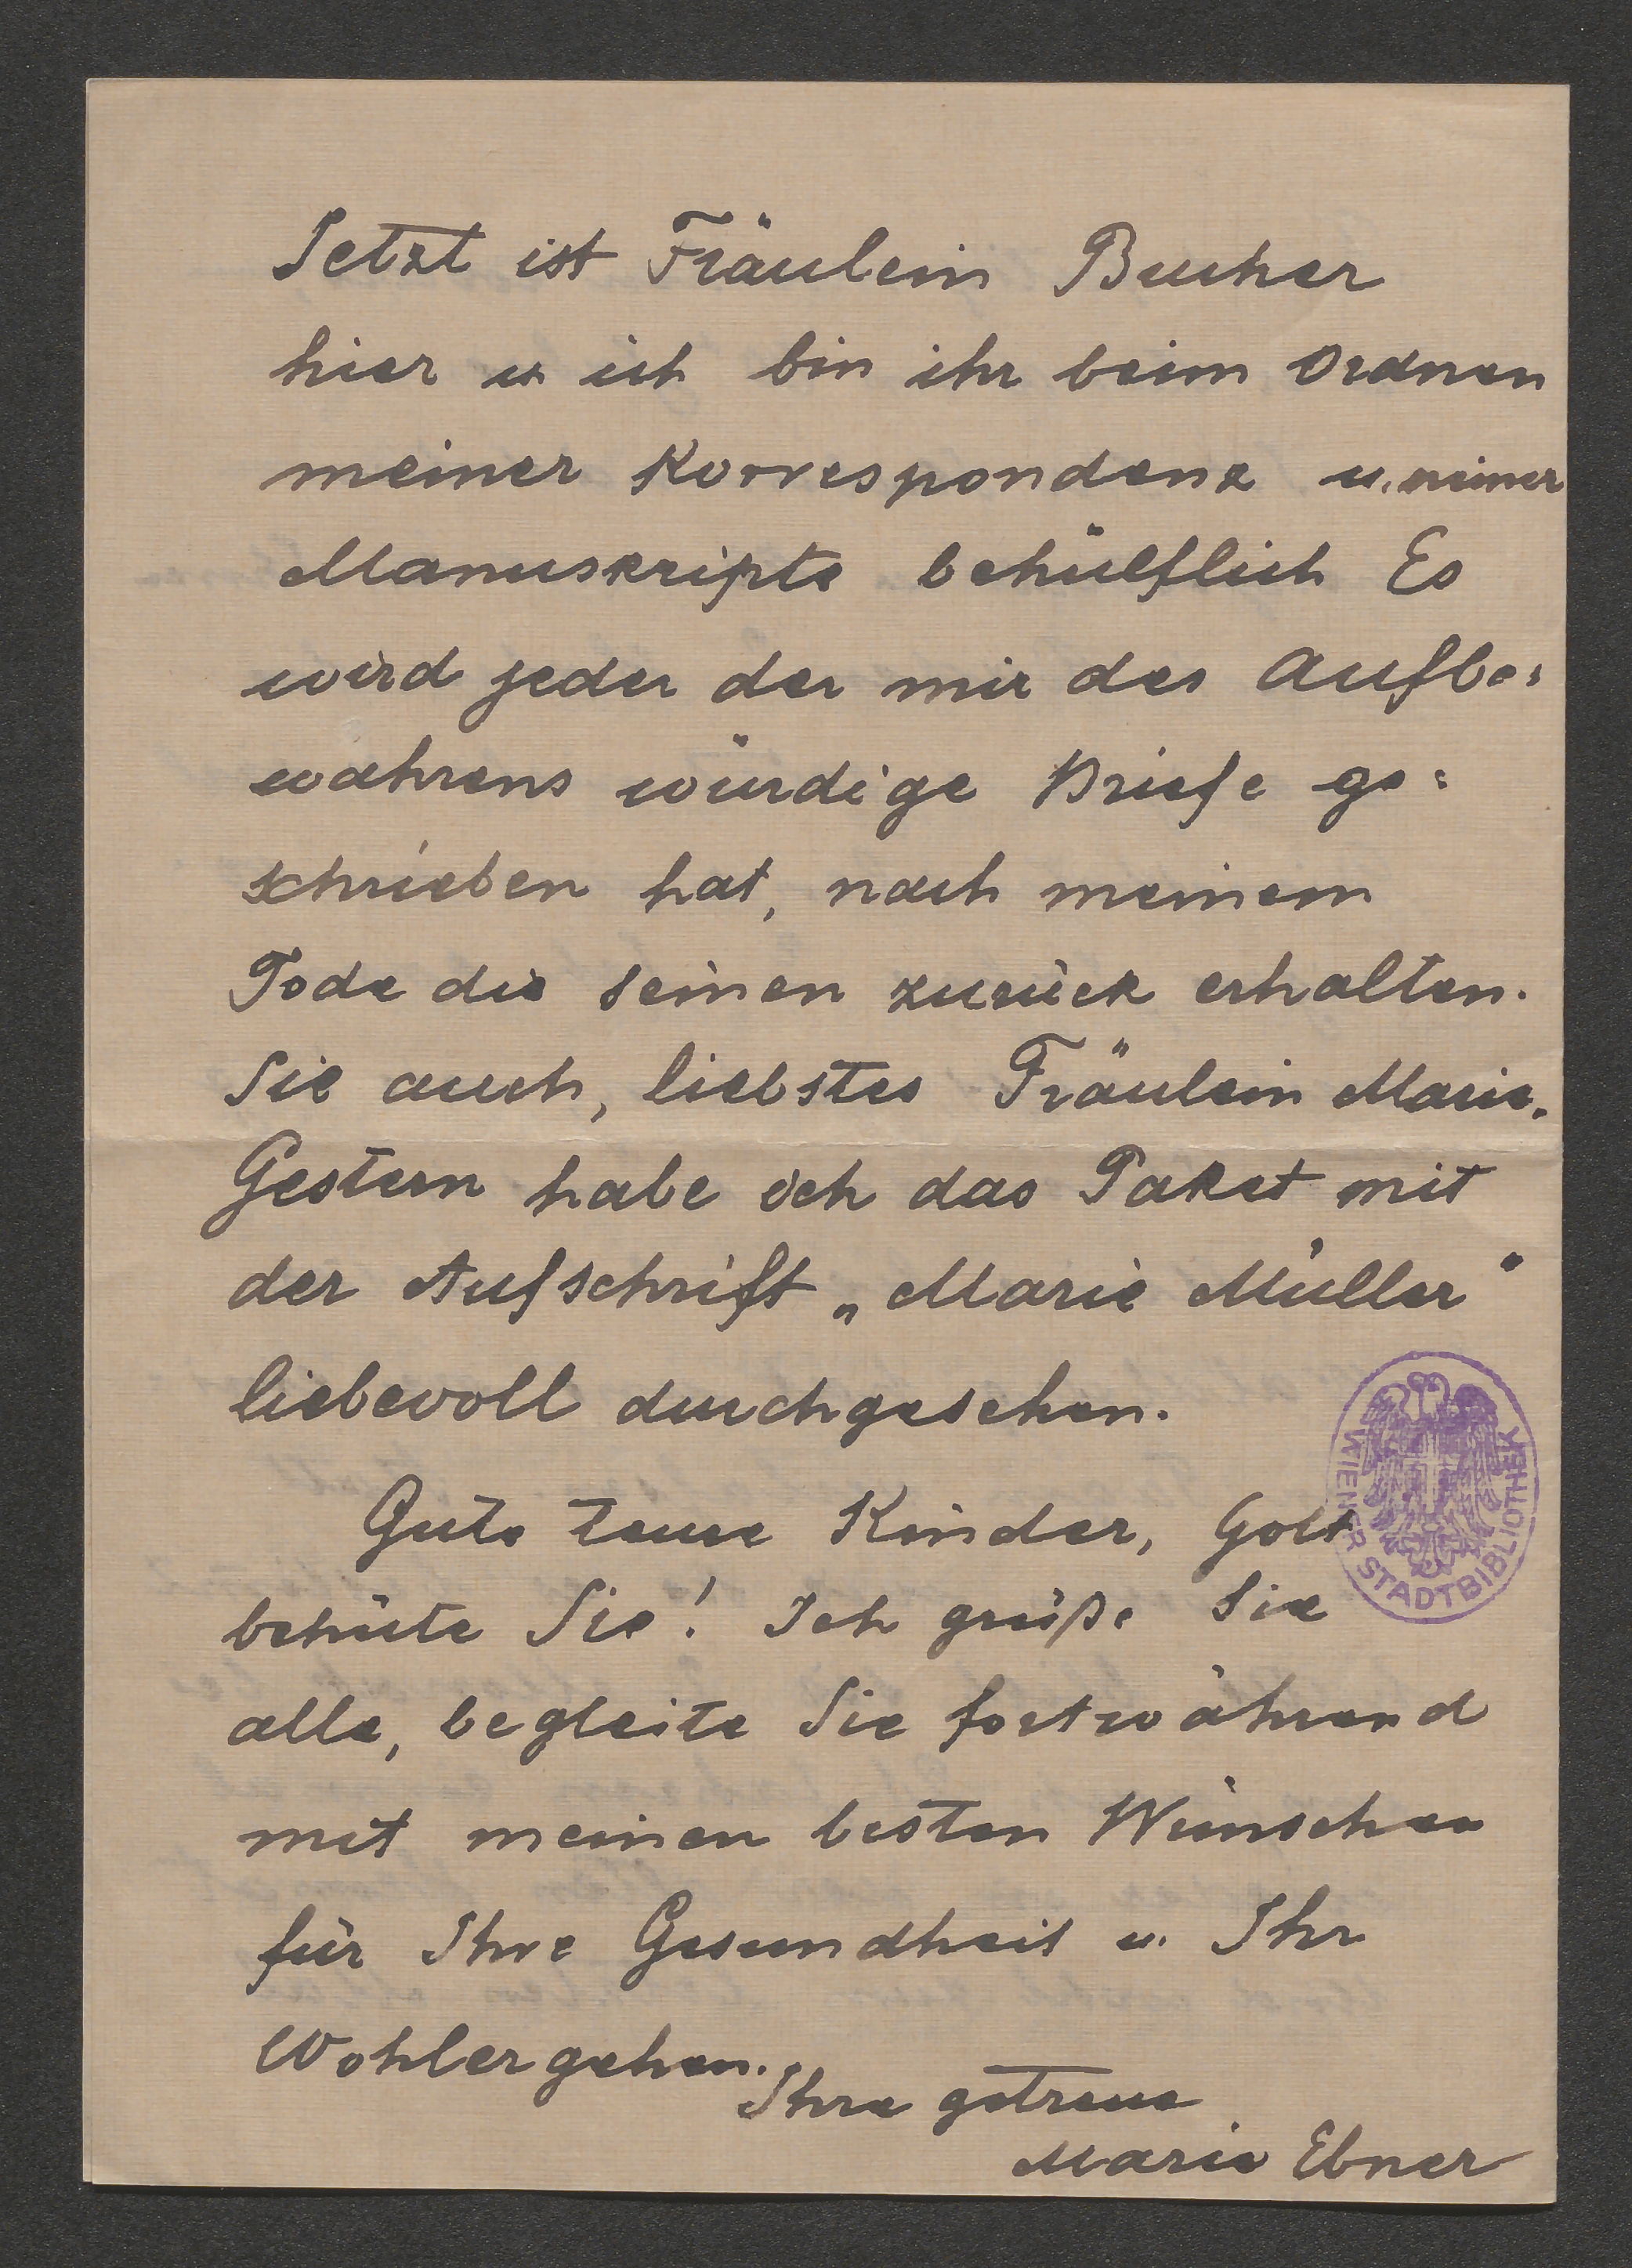 Jetzt ist Fräulein Bucher
hier u ich bin ihr beim Ordnen
meiner Korrespondenz u. meiner
Manuskripte behülflich Es
wird jeder der mir des Aufbe=
wahrens würdige Briefe ge=
schrieben hat, nach meinem
Tode die seinen zurück erhalten.
Sie auch, liebstes Fräulein Marie.
Gestern habe ich das Paket mit
der Aufschrift „Marie Müller"
liebevoll durchgesehen.
Gute teure Kinder, Gott
behüte Sie! Ich grüße Sie
alle, begleite Sie fortwährend
mit meinen besten Wünschen
für Ihre Gesundheit u. Ihr
Wohlergehen.
Ihre getreue
Marie Ebner
WIENER STADTBIBLIOTHEK